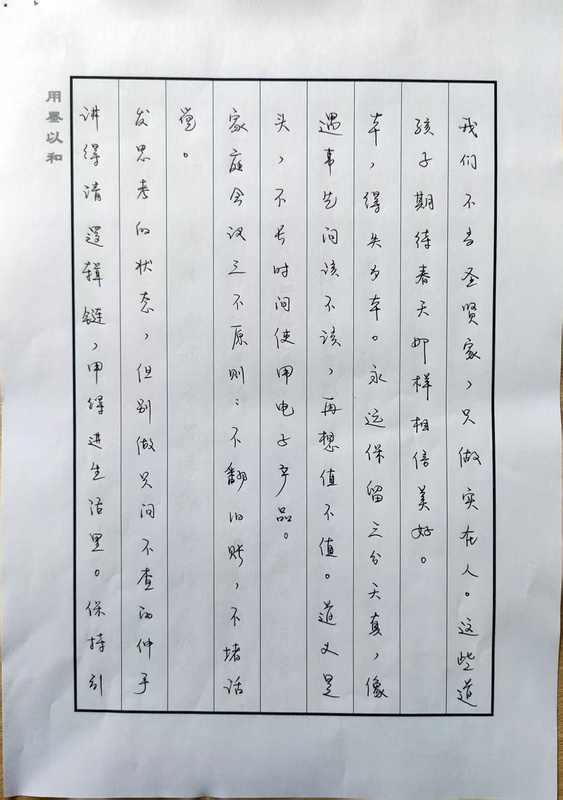 用墨以和
讲得清逻辑链，用得进生活里。保持引
发思考的状态，但别做只问不查的伸手
党。
家庭会议三不原则：不翻旧账，不堵话
头，不长时间使用电子产品。
遇事先问该不该，再想值不值。道义是
本，得失为末。永远保留三分天真，像
孩子期待春天那样相信美好。
我们不当圣贤家，只做实在人。这些道